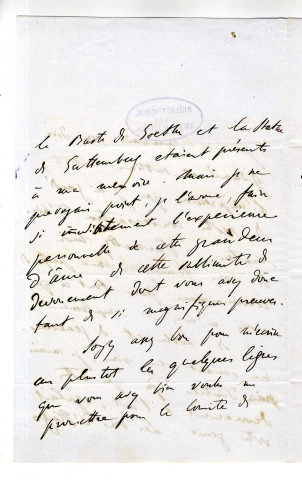 le Buste de Goethe et la Statue
de Guttemberg etaient présents
à ma memoire. Mais je ne
prevoyais point, je l'avoue, faire
si immédiatement l'experience
personnelle de cette grandeur
d'âme, de cette sublimité de
devouement dont vous avez donné
tant de si magnifiques preuves.
Soyez assez bon pour m'écrire
au plustot les quelques lignes
que vous avez bien voulu me
promettre pour le Comité de